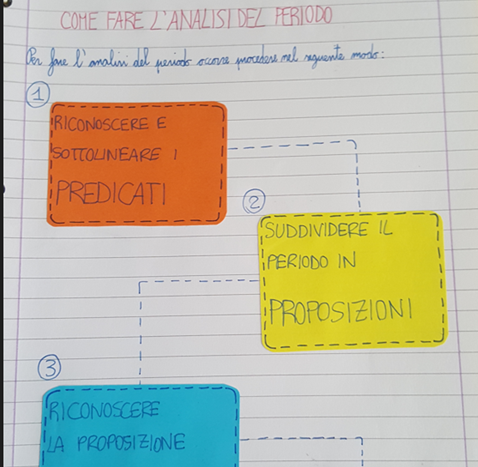 COME FARE L'ANALISI DEL PERIODO
Per fare l'analisi del periodo occorre procedere nel seguente modo:
1
RICONOSCERE E
SOTTOLINEARE I
PREDICATI
2
SUDDIVIDERE IL
PERIODO IN
PROPOSIZIONI
3
RICONOSCERE
LA PROPOSIZIONE